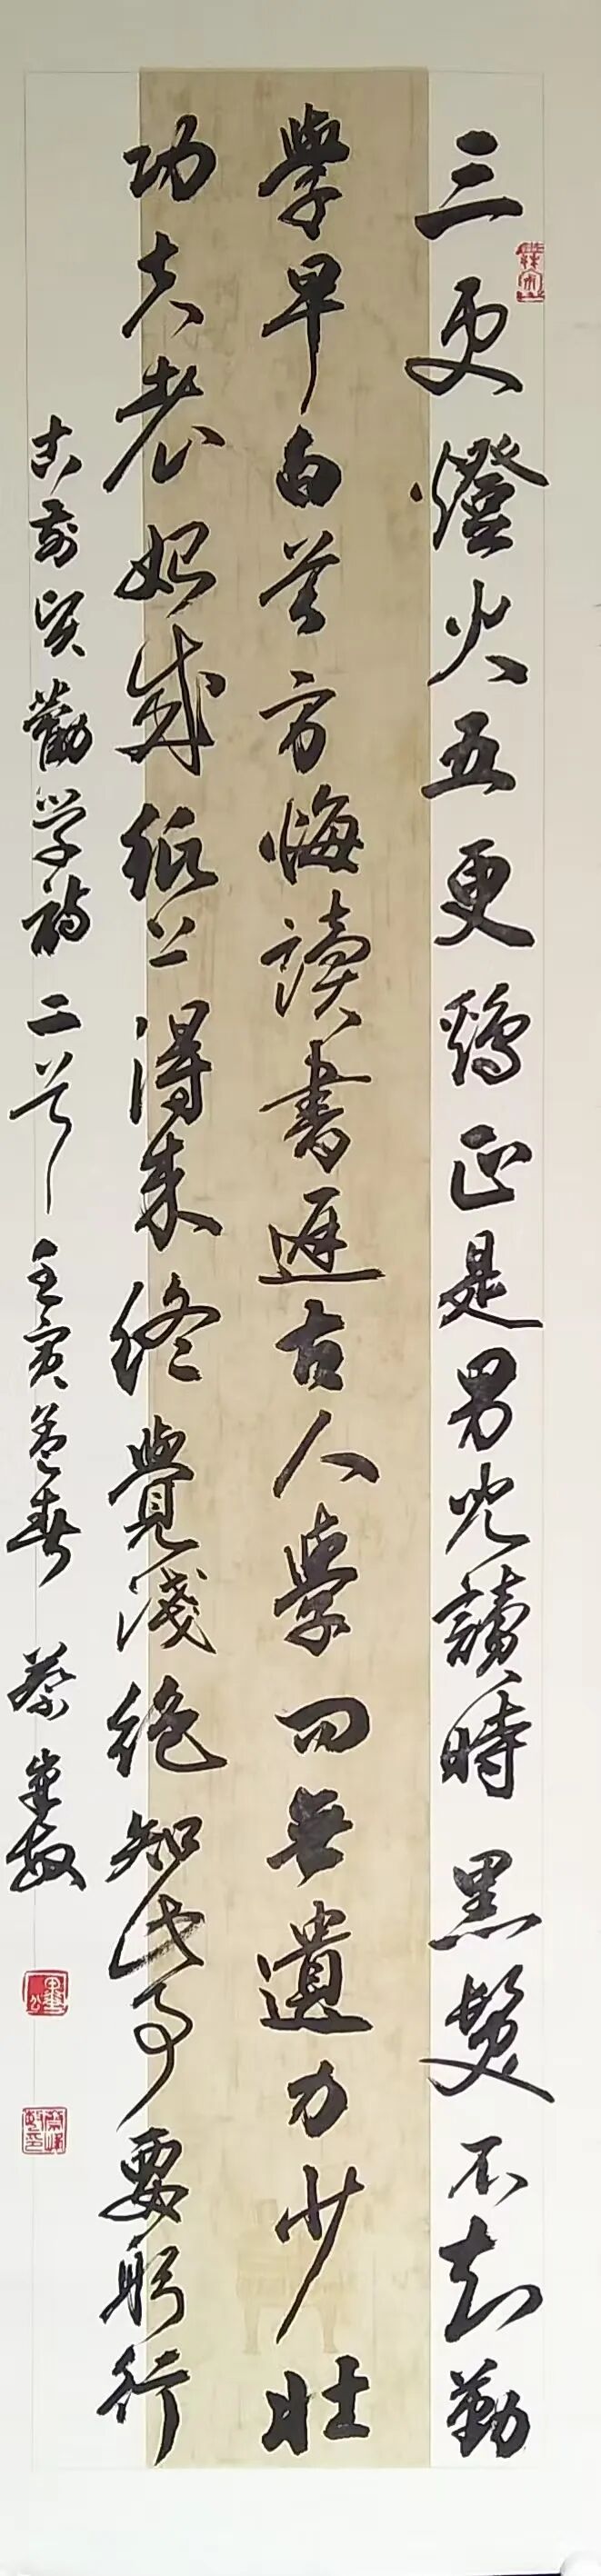 三更燈火五更鷄正是男兒讀時黑髮不知勤
學早白首方悔讀書遲古人學问無遺力少壯
功夫老始成紙上得来終覺淺絕知此事要躬行
前贤勸学詩二首 壬寅春 蔡峯敏